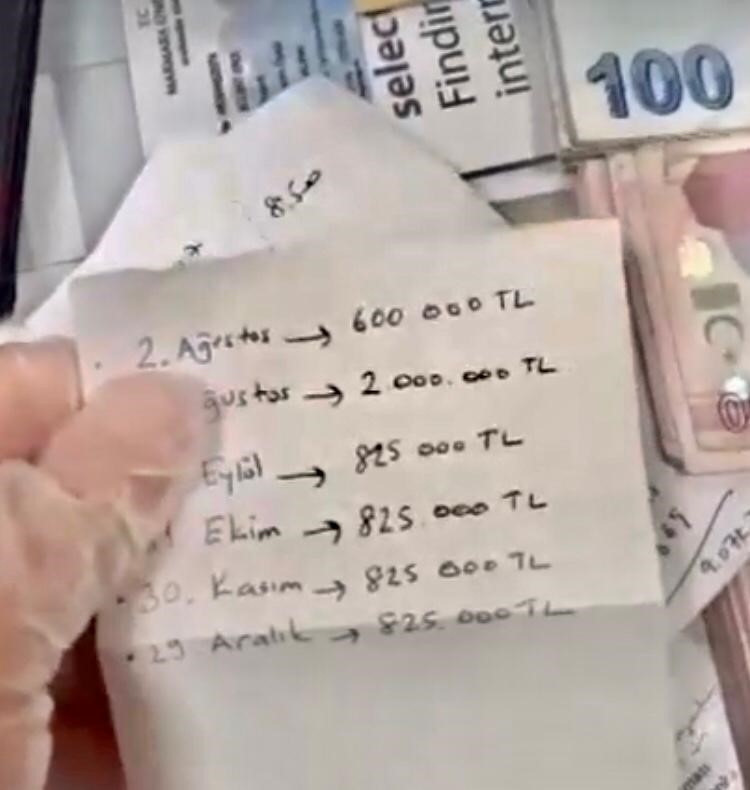 TC
selec
Findin
inter
100
850
2. Ağustos → 600 000 TL
ğustos → 2.000.000 TL
Eylül → 825 000 TL
Ekim → 825.000 TL
• 30. Kasım → 825 000 TL
• 29 Aralık → 825.000 TL